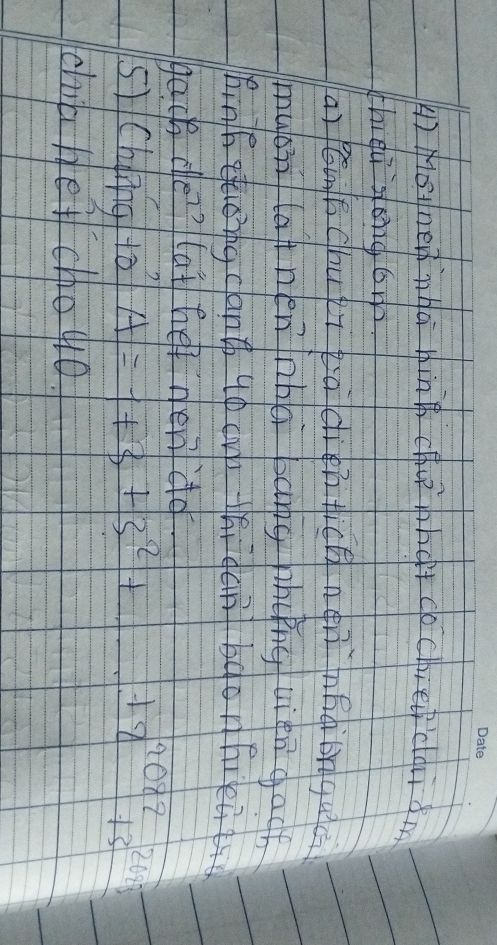 Date
4) Một nền nhà hình chữ nhật có chiều dài 8m
chiều rộng 6m.
a) Tính chu vi và diện tích nền nhà b) người
muốn lát nền nhà bằng những viên gạch
hình vuông cạnh 40 cm thì cần bao nhiêu viên
gạch để lát hết nền đó.
5) Chứng tỏ A = 1 + 3 + 3² + ... + 3²⁰²² + 3²⁰²³
chia hết cho 40.